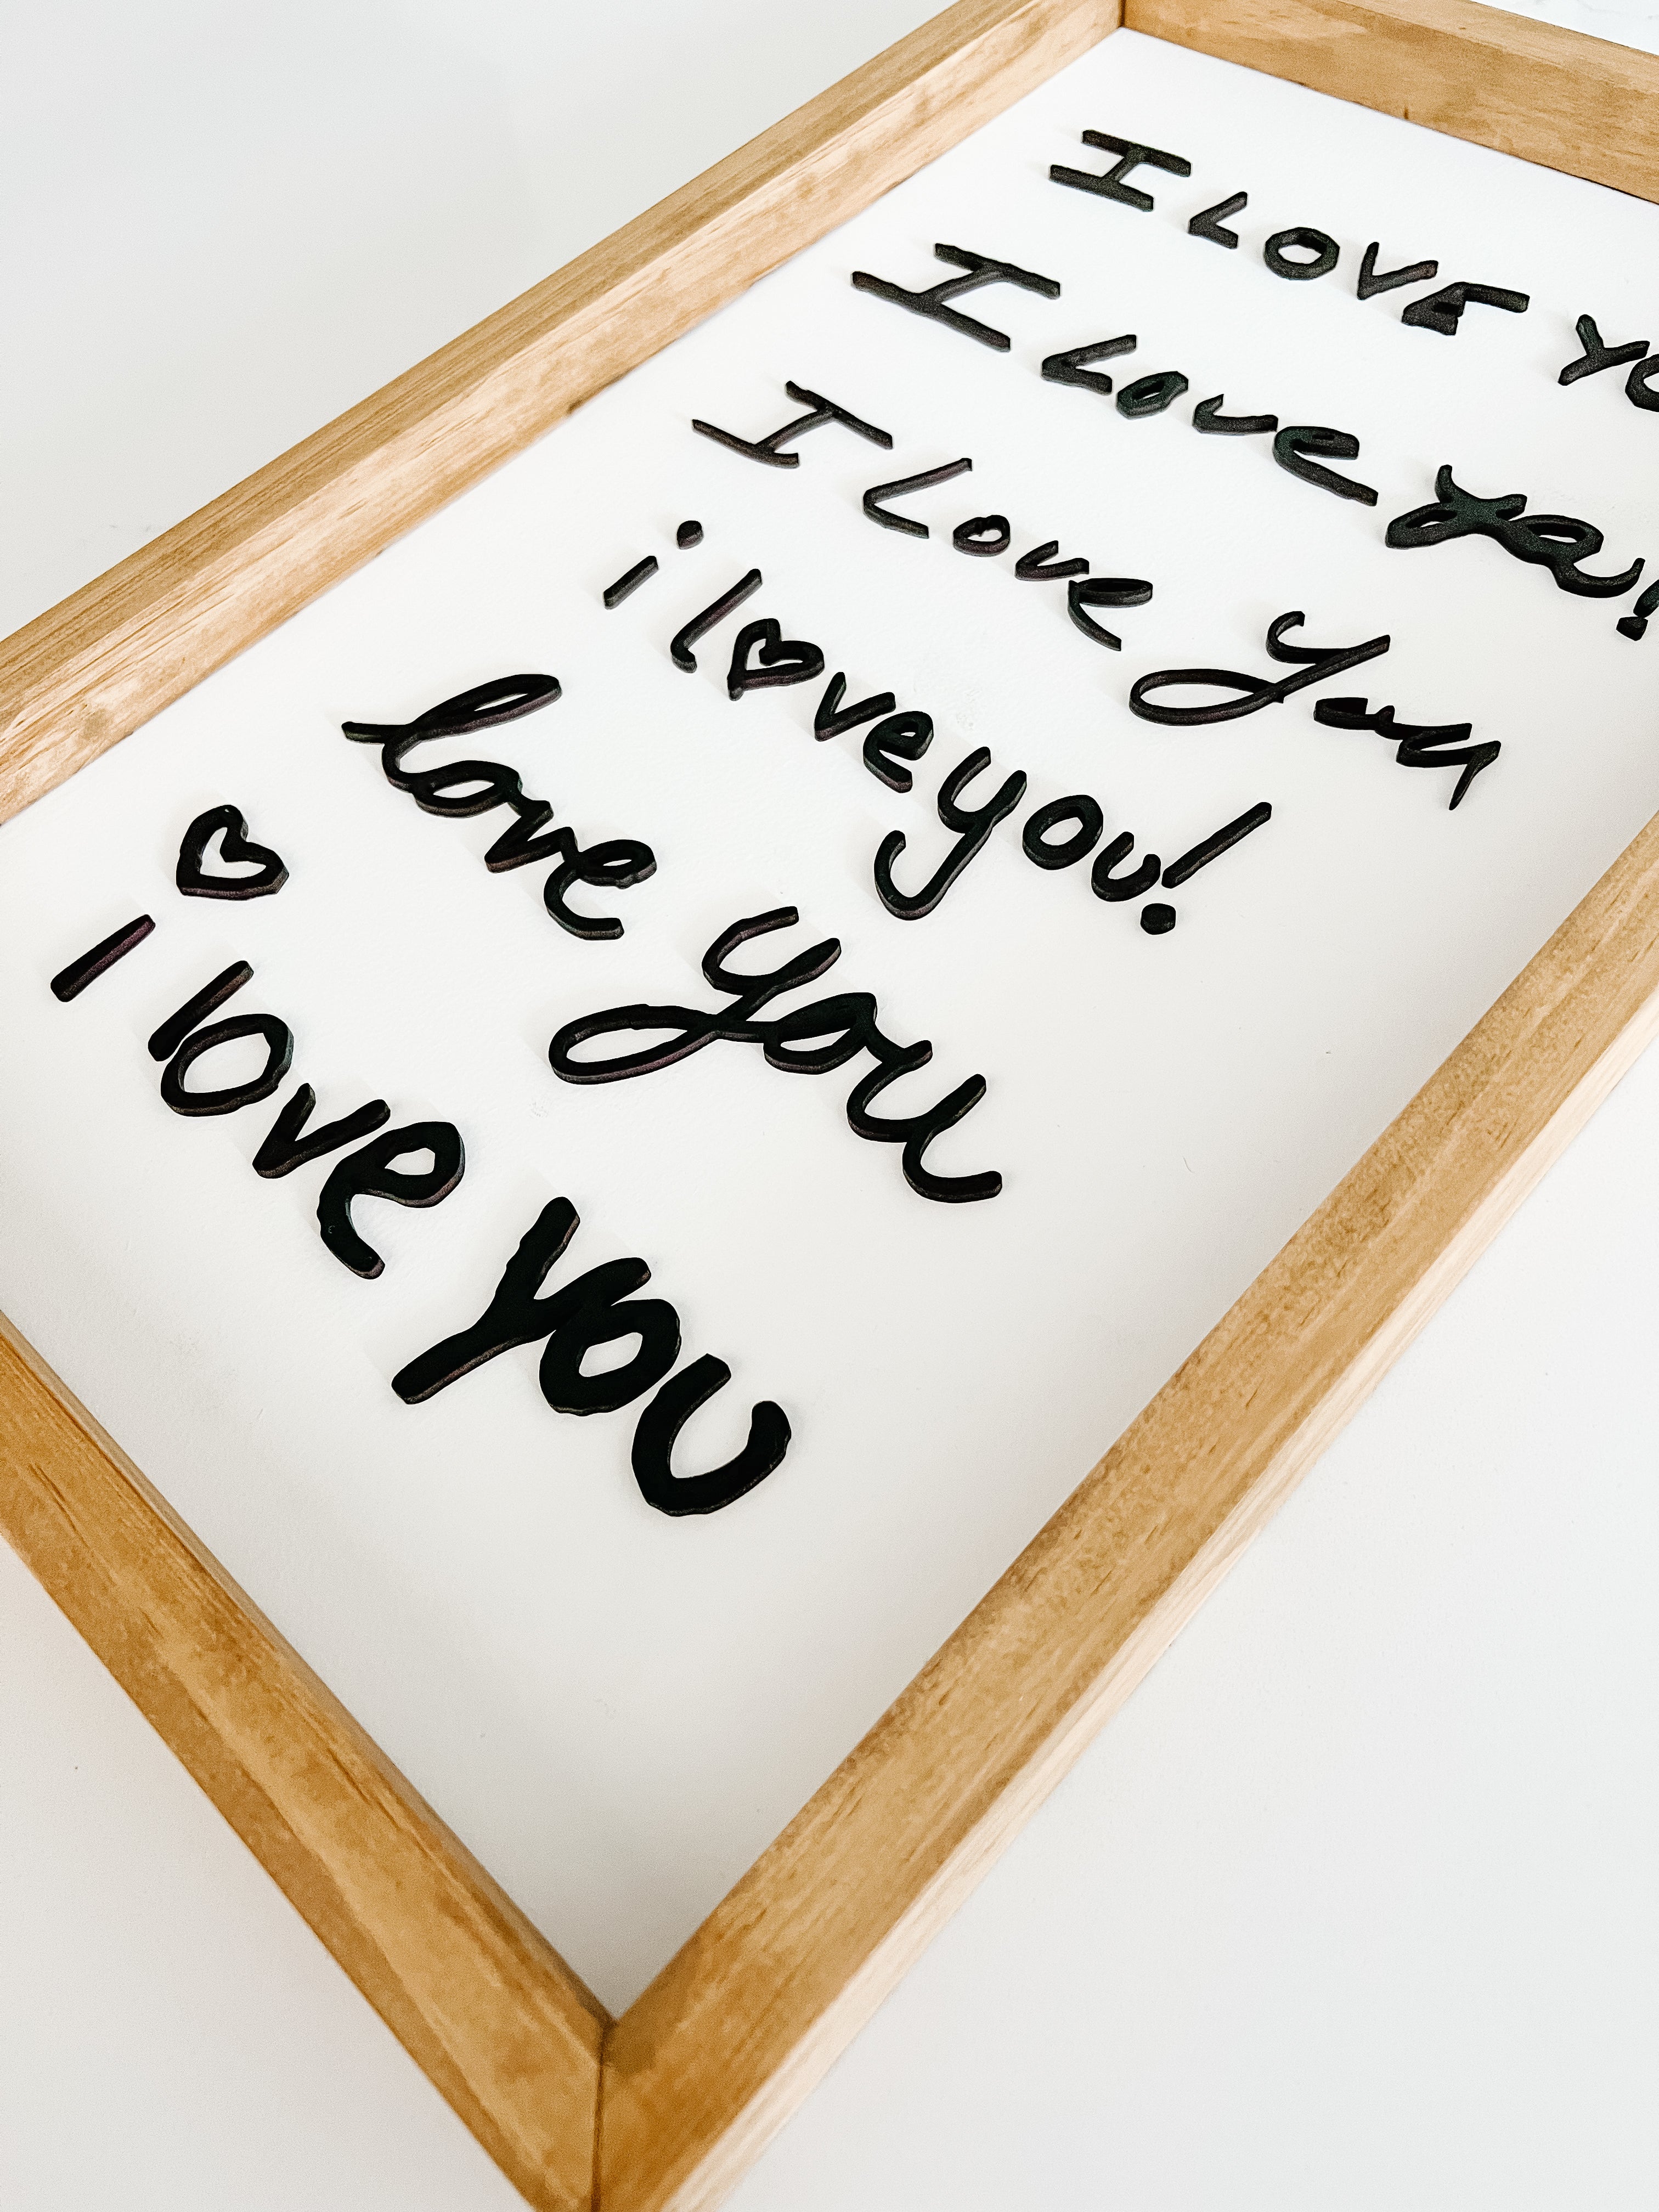 I LOVE YO
I Love
I Love you
i l♡ve you!
love you
i love you